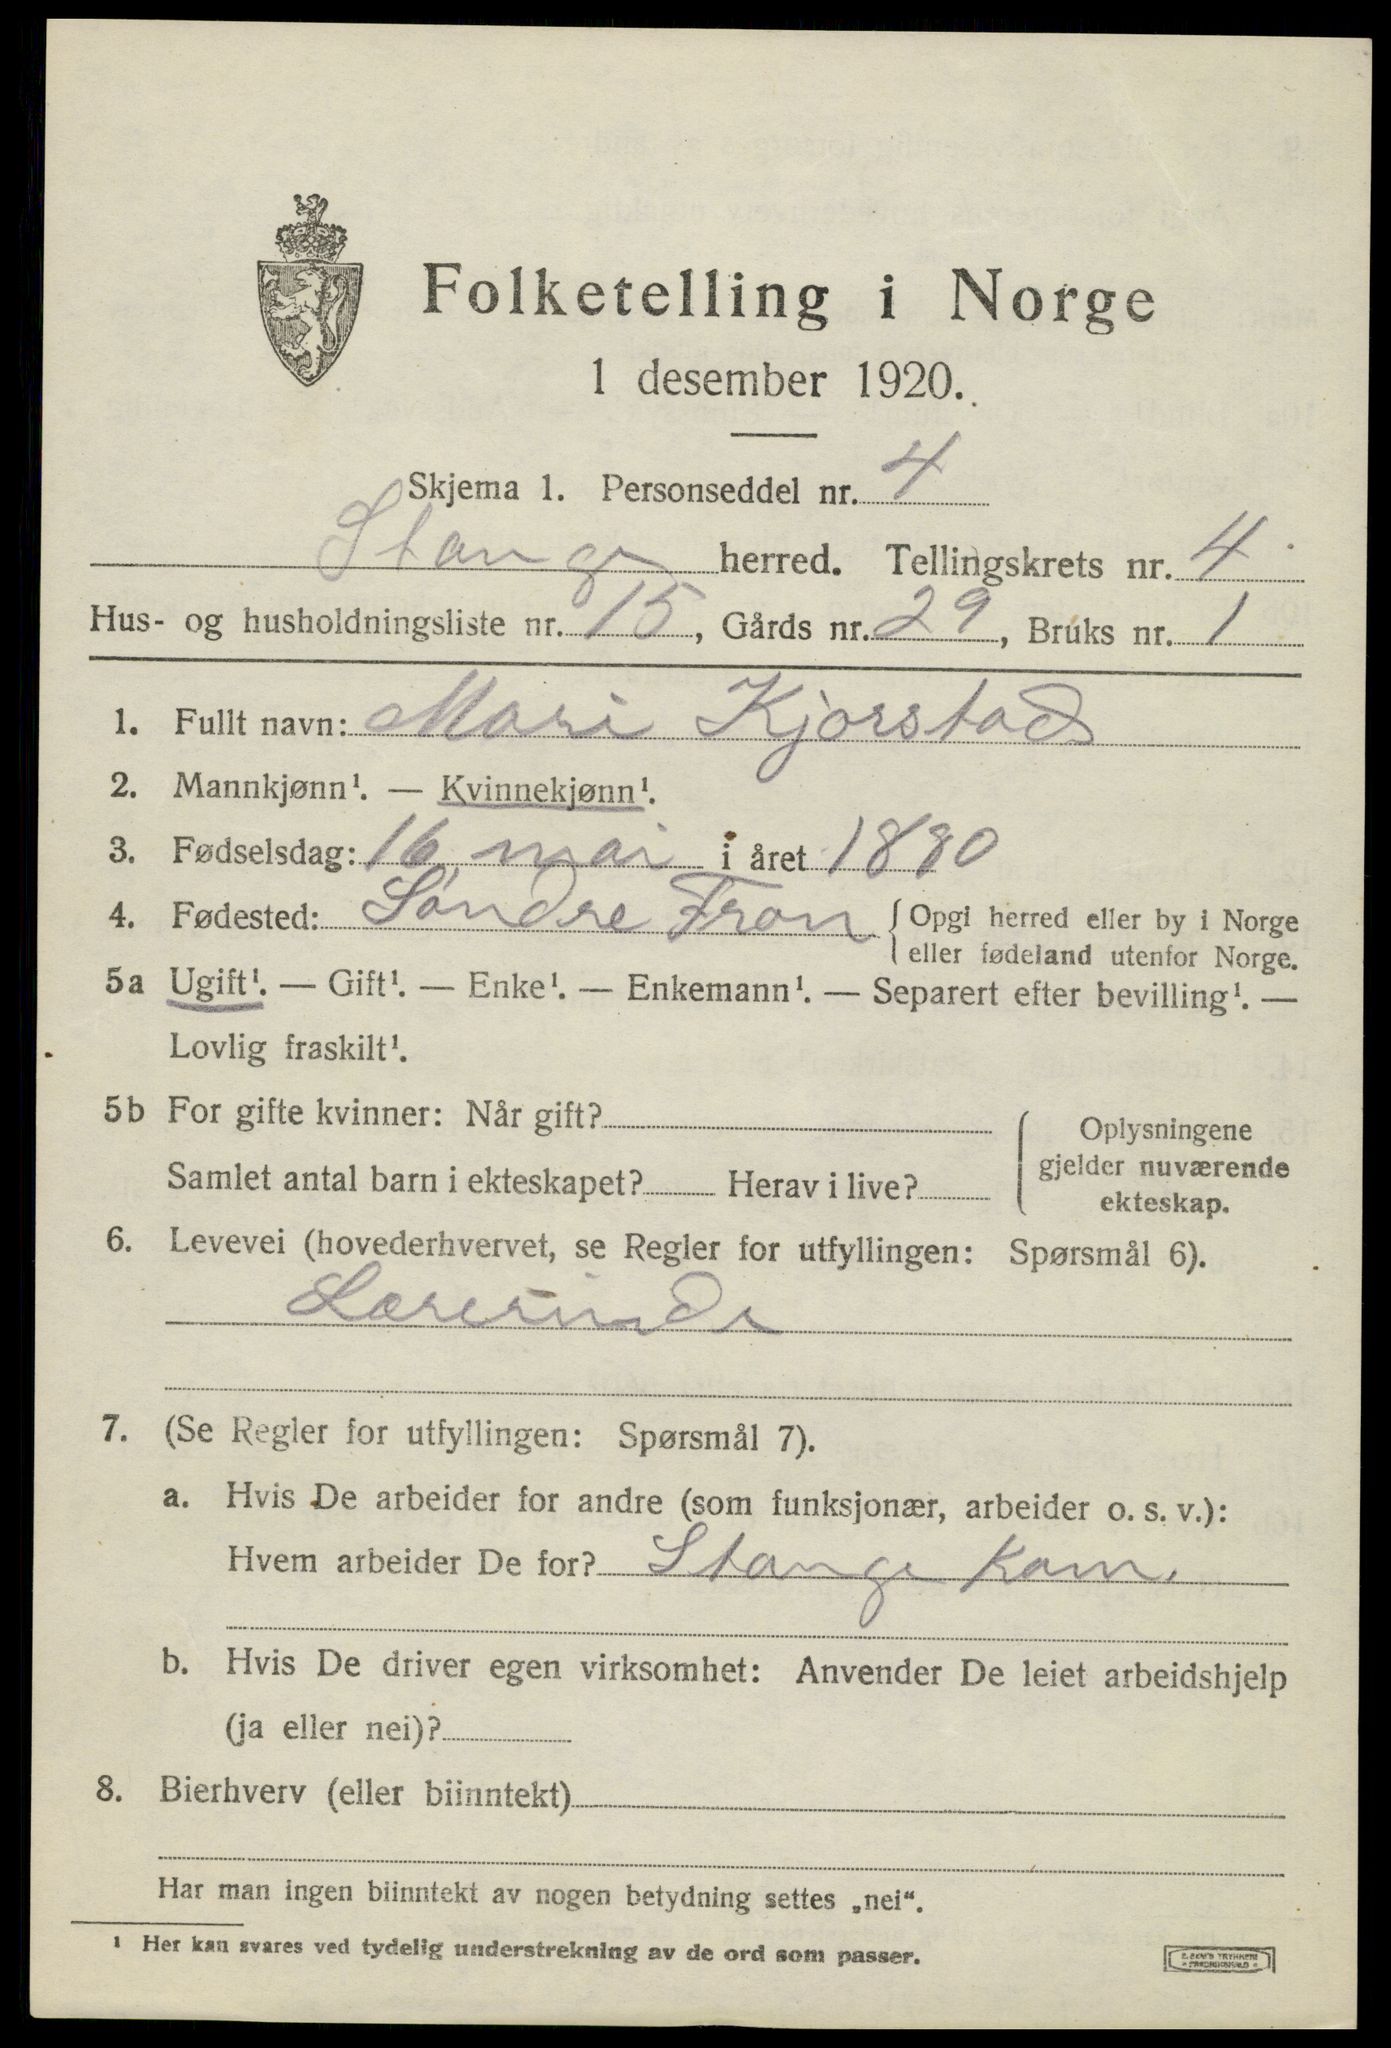 Folketelling i Norge
1 desember 1920.
Skjema 1. Personseddel nr. 4
Stange herred. Tellingskrets nr. 4
Hus- og husholdningsliste nr. 15, Gårds nr. 29, Bruks nr. 1
1. Fullt navn: Mari Kjorstad
2. Mannkjønn¹. — Kvinnekjønn¹.
3. Fødselsdag: 16 mai i året 1880
4. Fødested: Söndre Fron { Opgi herred eller by i Norge
eller fødeland utenfor Norge.
5a Ugift¹. — Gift¹. — Enke¹. — Enkemann¹. — Separert efter bevilling¹. —
Lovlig fraskilt¹.
5b For gifte kvinner: Når gift?
Samlet antal barn i ekteskapet? Herav i live?
{ Oplysningene
gjelder nuværende
ekteskap.
6. Levevei (hovederhvervet, se Regler for utfyllingen: Spørsmål 6).
Lærerinde
7. (Se Regler for utfyllingen: Spørsmål 7).
a. Hvis De arbeider for andre (som funksjonær, arbeider o. s. v.):
Hvem arbeider De for? Stange Kom.
b. Hvis De driver egen virksomhet: Anvender De leiet arbeidshjelp
(ja eller nei)?
8. Bierhverv (eller biinntekt)
Har man ingen biinntekt av nogen betydning settes „nei“.
¹ Her kan svares ved tydelig understrekning av de ord som passer.